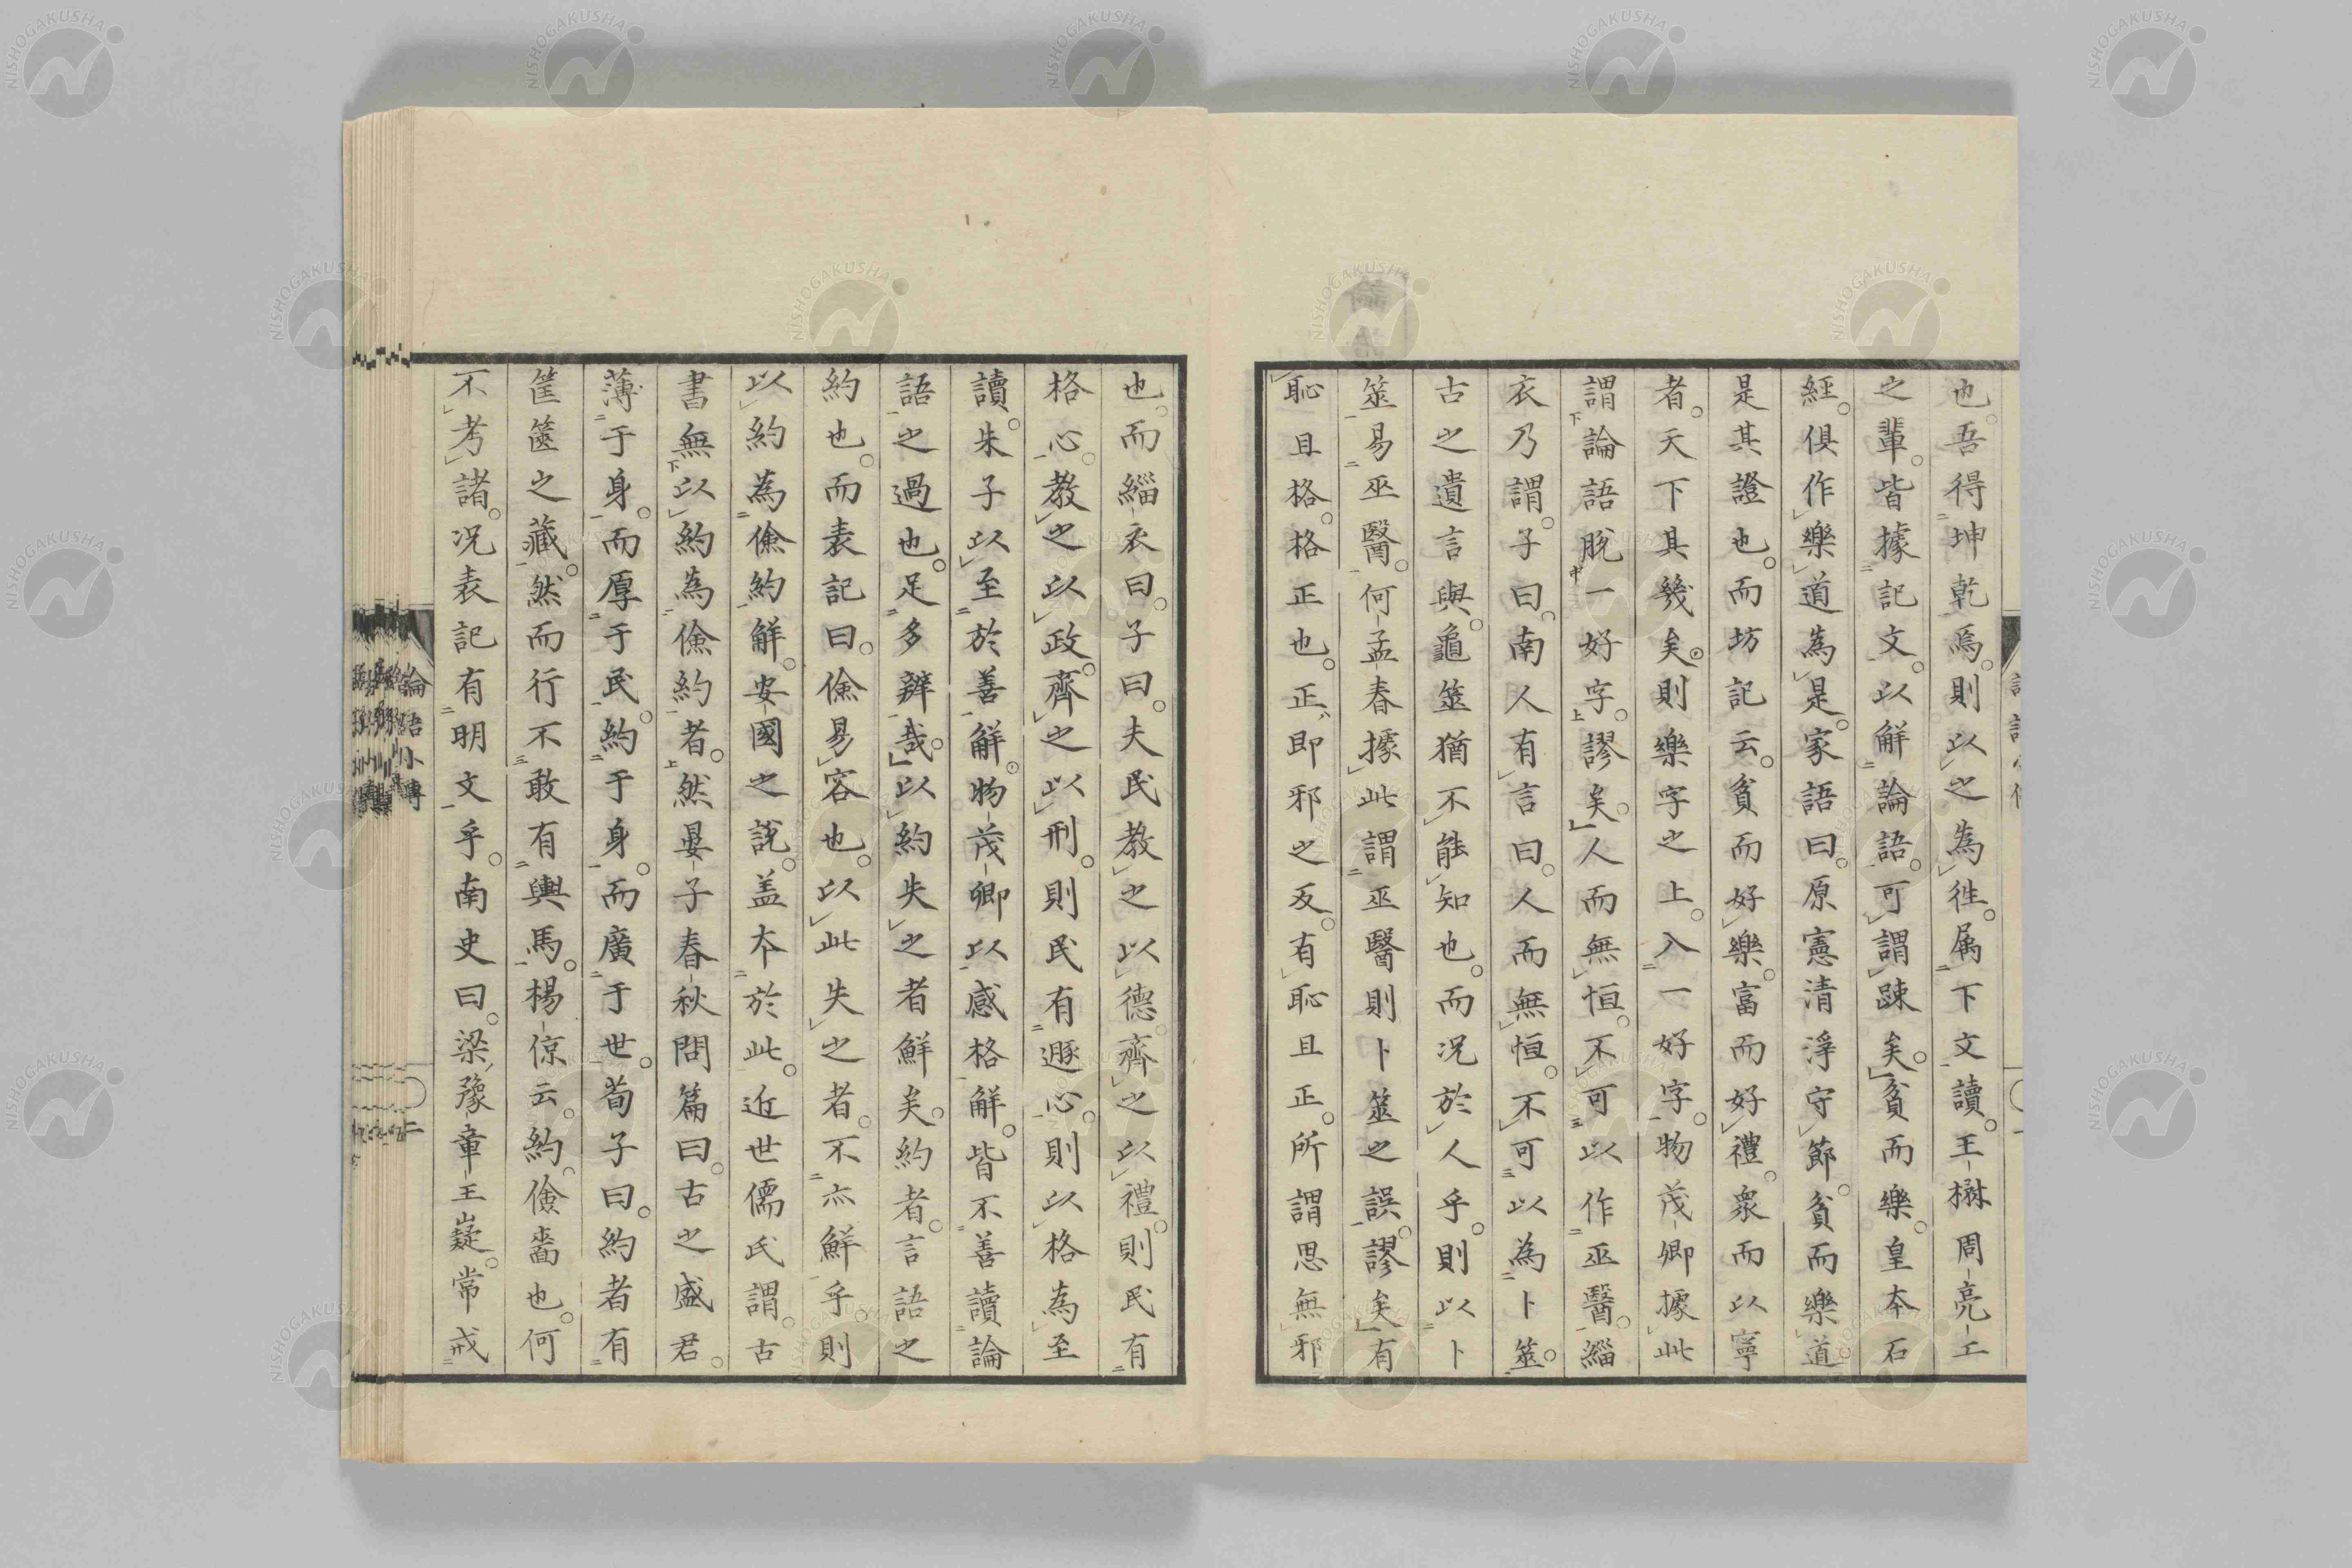 也。吾得坤乾焉。則以之為徃。属下文讀。王樹周亮工
之輩。皆據記文。以解論語。可謂踈矣。貧而樂。皇本石
經。倶作樂道為是。家語曰。原憲清浄守節。貧而樂道。
是其證也。而坊記云。貧而好樂。富而好禮。衆而以寧
者。天下其幾矣。則樂字之上。入一好字。物茂卿據此
謂論語脱一好字。謬矣。人而無恒。不可以作巫醫。緇
衣乃謂。子曰。南人有言曰。人而無恒。不可以為卜筮。
古之遺言與。龜筮猶不能知也。而况於人乎。則以卜
筮易巫醫。何孟春據此謂巫醫則卜筮之誤。謬矣。有
恥且格。格正也。正、即邪之反。有恥且正。所謂思無邪
也。而緇衣曰。子曰。夫民教之以德。齊之以禮。則民有
格心。教之以政。齊之以刑。則民有遯心。則以格為至
讀。朱子以至於善解。物茂卿以感格解。皆不善讀論
語之過也。足多辨哉。以約失之者鮮矣。約者。言語之
約也。而表記曰。儉易容也。以此失之者。不亦鮮乎則
以約為儉約解。安國之説。盖本於此。近世儒氏謂。古
書無以約為儉約者。然晏子春秋問篇曰。古之盛君。
薄于身。而厚于民。約于身。而廣于世。荀子曰。約者有
筐篋之藏。然而行不敢有輿馬。楊倞云。約。儉嗇也。何
不考諸。况表記有明文乎。南史曰。梁豫章王嶷。常戒
論語小傳
二
NISHOGAKUSHA